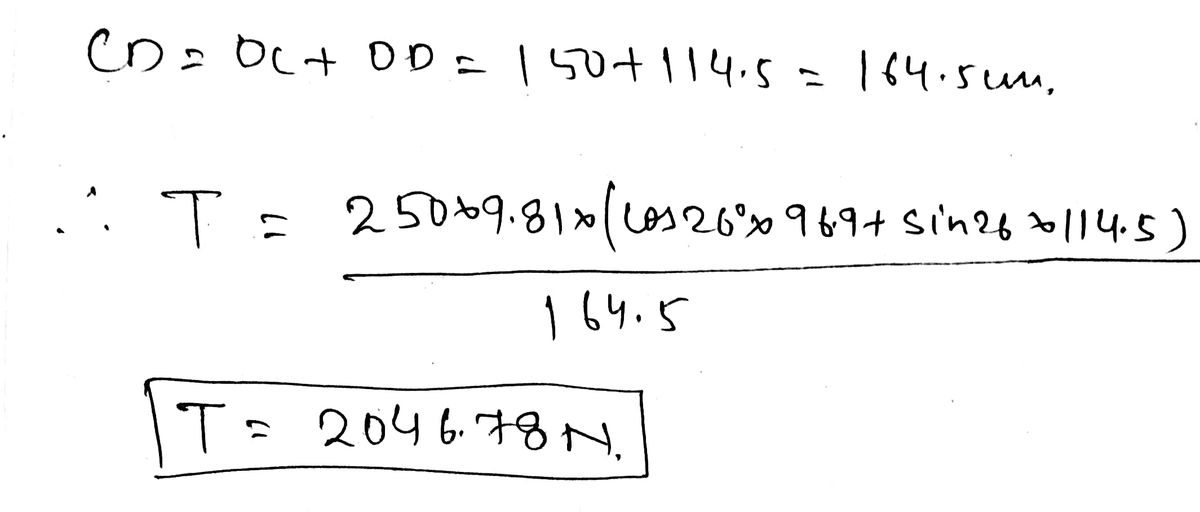 CD = OC + OD = 150 + 114.5 = 164.5 cm.
∴ T = 250 × 9.81 × (cos 26° × 96.9 + sin 26 × 114.5)
164.5
T = 2046.78 N.